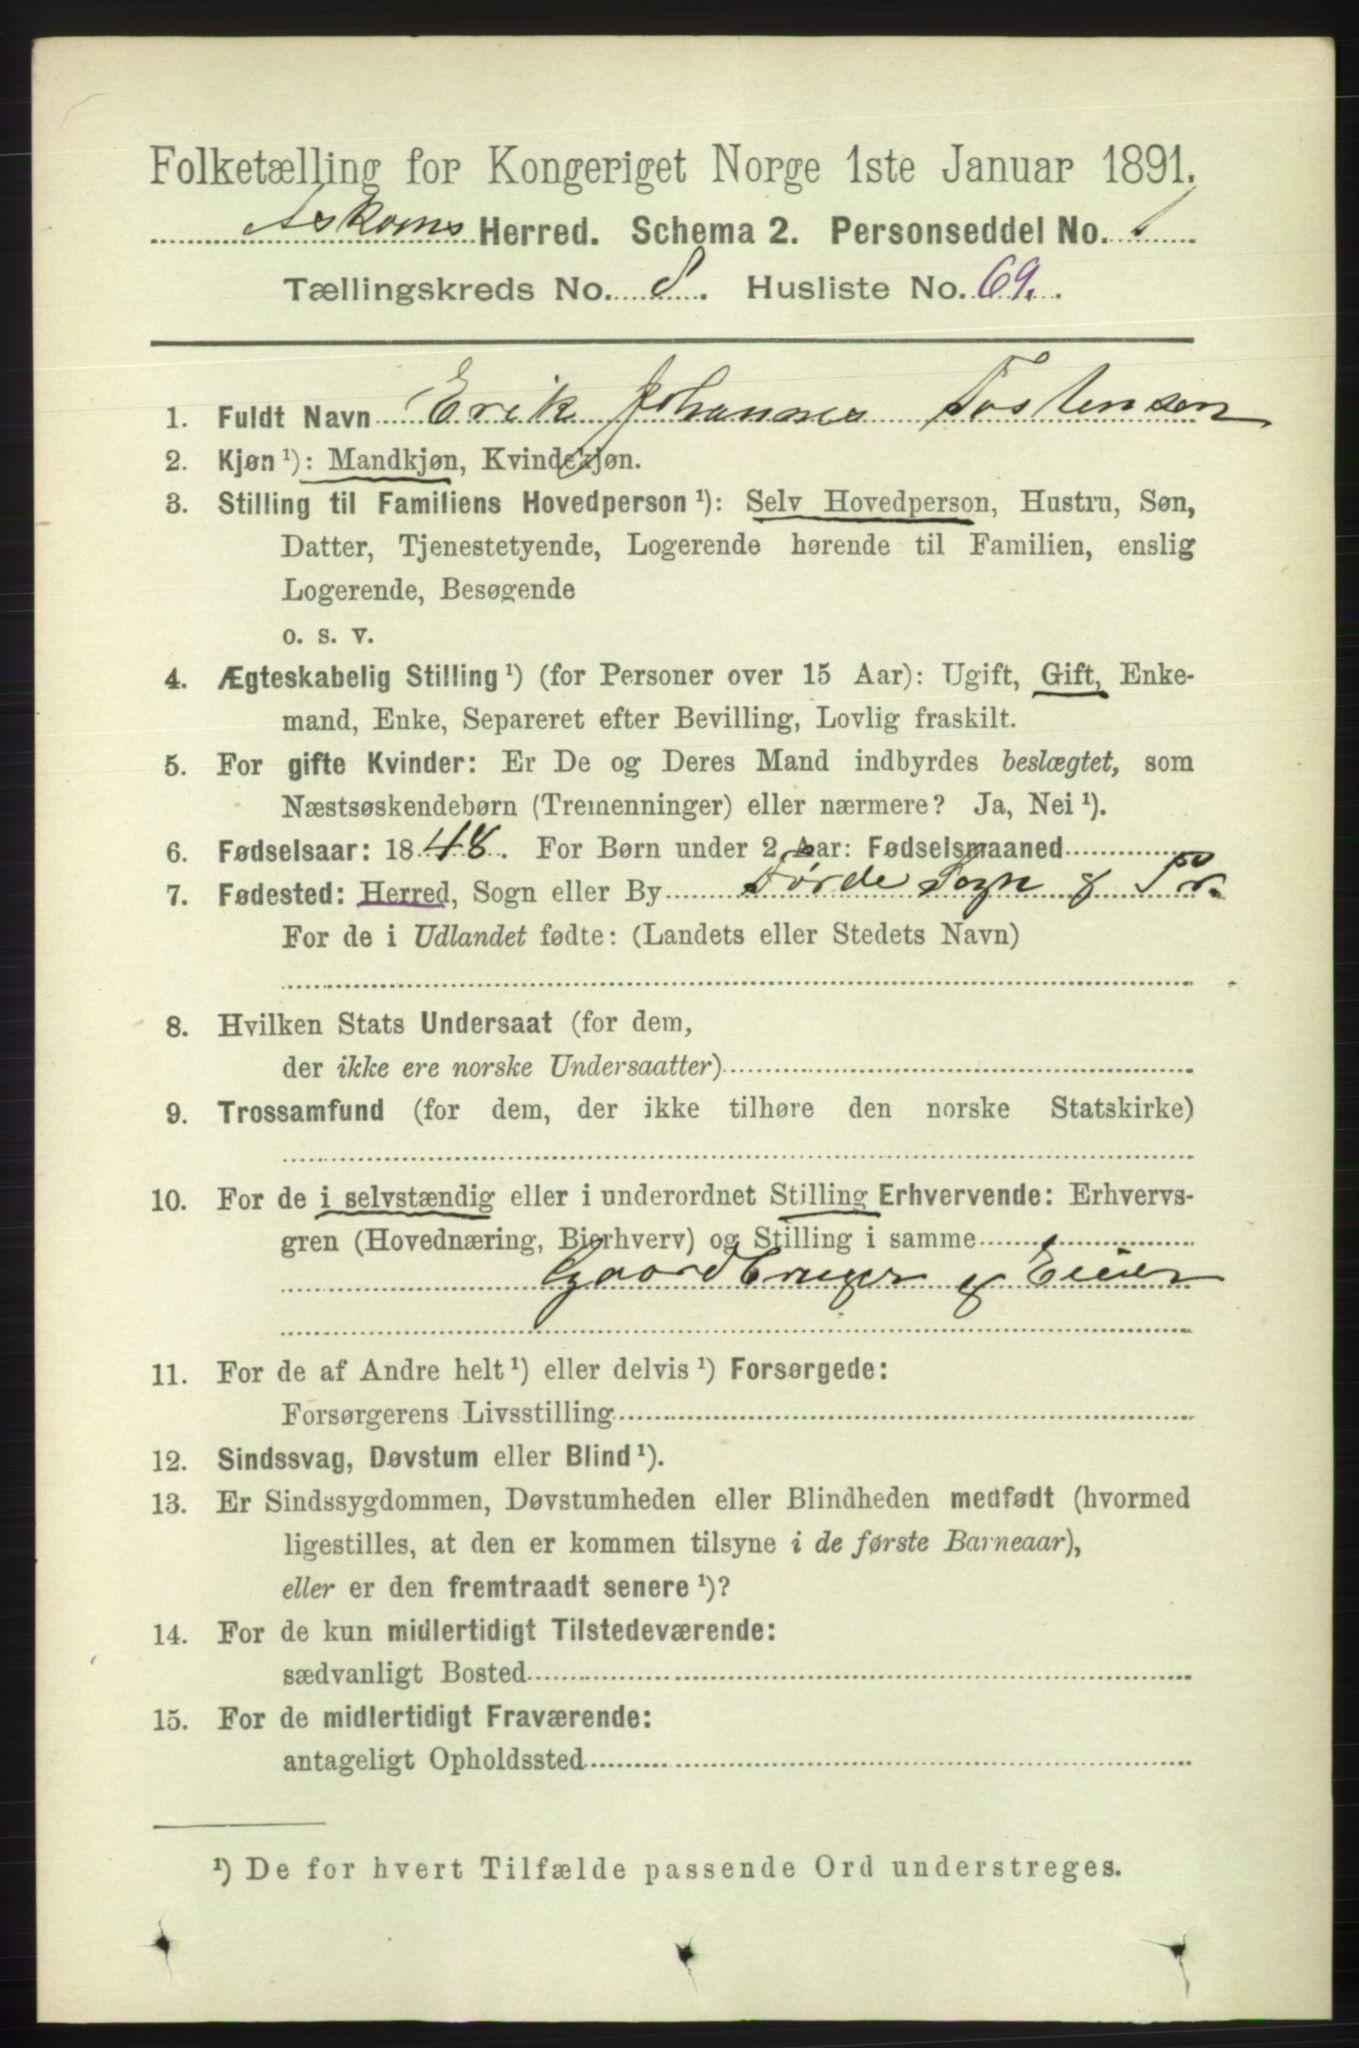 Folketælling for Kongeriget Norge 1ste Januar 1891.
Askvoms Herred. Schema 2. Personseddel No. 1
Tællingskreds No. 8. Husliste No. 69.
1. Fuldt Navn Erik Johannes Tostensen
2. Kjøn ¹): Mandkjøn, Kvindekjøn.
3. Stilling til Familiens Hovedperson ¹): Selv Hovedperson, Hustru, Søn,
Datter, Tjenestetyende, Logerende hørende til Familien, enslig
Logerende, Besøgende
o. s. v.
4. Ægteskabelig Stilling ¹) (for Personer over 15 Aar): Ugift, Gift, Enke-
mand, Enke, Separeret efter Bevilling, Lovlig fraskilt.
5. For gifte Kvinder: Er De og Deres Mand indbyrdes beslægtet, som
Næstsøskendebørn (Tremenninger) eller nærmere? Ja, Nei ¹).
6. Fødselsaar: 1848. For Børn under 2 Aar: Fødselsmaaned
7. Fødested: Herred, Sogn eller By Førde Sogn & Pr.
For de i Udlandet fødte: (Landets eller Stedets Navn)
8. Hvilken Stats Undersaat (for dem,
der ikke ere norske Undersaatter)
9. Trossamfund (for dem, der ikke tilhøre den norske Statskirke)
10. For de i selvstændig eller i underordnet Stilling Erhvervende: Erhvervs-
gren (Hovednæring, Bierhverv) og Stilling i samme
Gaardbruger & Eier
11. For de af Andre helt ¹) eller delvis ¹) Forsørgede:
Forsørgerens Livsstilling
12. Sindssvag, Døvstum eller Blind ¹).
13. Er Sindssygdommen, Døvstumheden eller Blindheden medfødt (hvormed
ligestilles, at den er kommen tilsyne i de første Barneaar),
eller er den fremtraadt senere ¹)?
14. For de kun midlertidigt Tilstedeværende:
sædvanligt Bosted
15. For de midlertidigt Fraværende:
antageligt Opholdssted
¹) De for hvert Tilfælde passende Ord understreges.